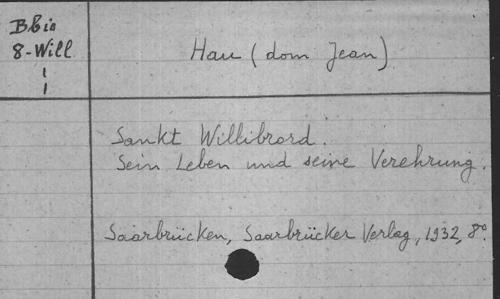 Bbio
8-Will
Hau (dom Jean)
Sankt Willibrord.
Sein Leben und seine Verehrung.
Saarbrücken, Saarbrücker Verlag, 1932, 8º.